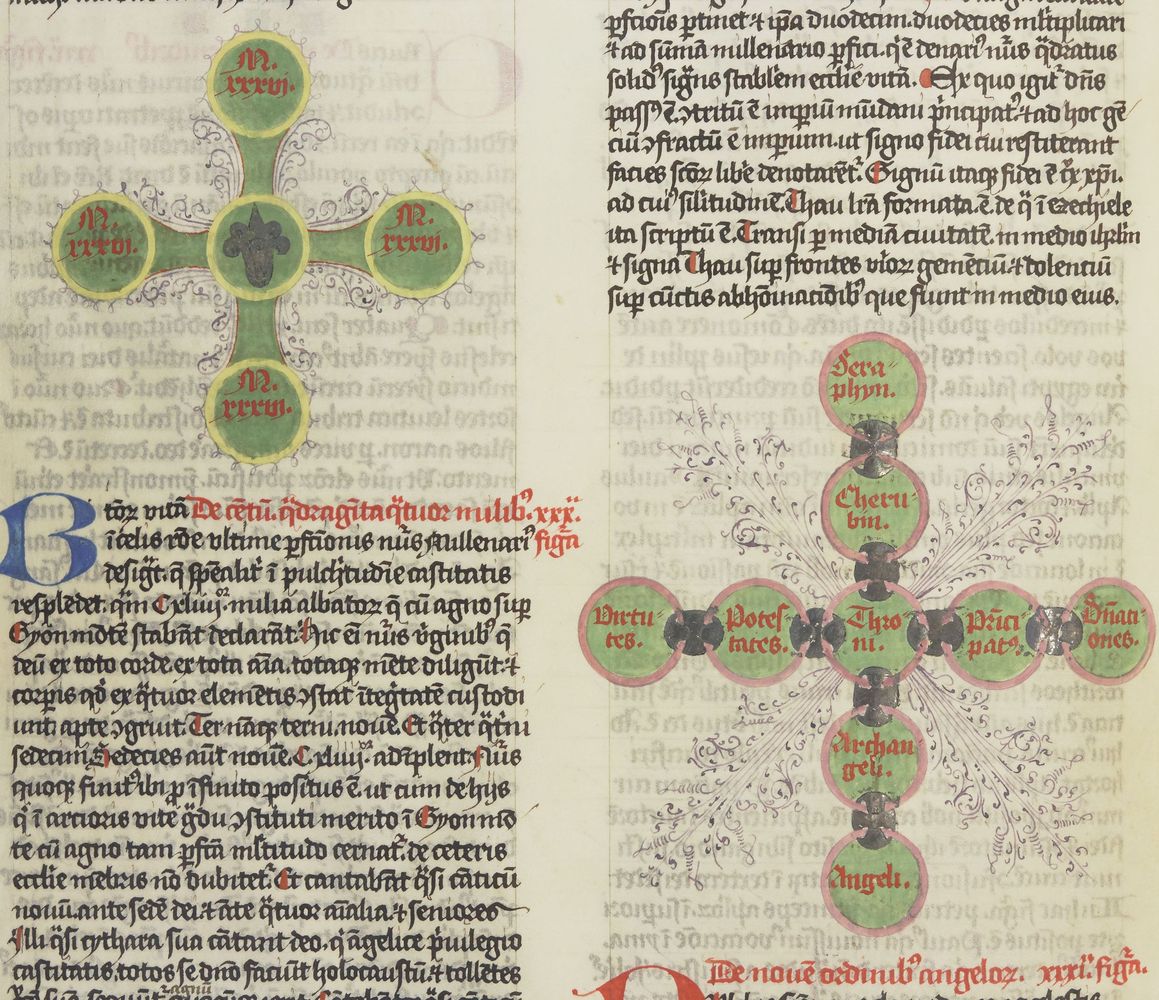 M.
xxxvi.
M.
xxxvi.
M.
xxxvi.
M.
xxxvi.
toꝝ vitā De cētū. q̄dragīta q̄tuor milibꝰ. xxx.
ī celis rōe ultime ꝑfctionis nūs Millenariꝰ figa
desigt. q̄ spēalit̓ ī pulchtudīe castitatis
resplēdet. qm̄ Cxliiiior milia albatoꝝ q̄ cū agno sup
Syon mōtē stabāt declarāt. hic eī nūs v̓gīnibꝰ q̄
deū ex toto corde. ex tota aīa. totaqꝫ mēte diligūt. ⁊
corpis qd̓ ex q̄tuor elemētis ꝯstat ītegtatē custodi
unt apte ꝯgruit. Ter nāqꝫ terni. nouē. Et q̄ter q̄tni
sedecim. Sedecies aūt nouē. Cxliiiior. adīplent. Nūs
quoqꝫ finitꝰ ibi ꝑ īfinito positus ē. ut cum de hijs
q̄ ī arctioris vite gdu ꝯstituti merito ī Syon mō
te cū agno tam ꝑfcā mltitudo cernat̓. de ceteris
ecclie mēbris nō dubitet̓. Et cantabāt qsi cāticū
nouū. ante sedē dei. ⁊ āte q̄tuor aīalia. ⁊ seniores
Illi qsi cythara sua cātant deo. q̄ āgelice pᷓuilegio
castitatis. totos se dn̄o faciūt holocaustū. ⁊ tollētes
ꝑfcionis ꝑtinet. ⁊ ip̄a duodecim. duodecies mltiplicari
⁊ ad sūmā millenario ꝑfici. qꝛ denariꝰ nūs q̄dratus
solidꝰ signs stablem ecclie vitā. Ex quo igit̓ dn̄s
passꝰ ē. ꝯtritū ē imꝑiū mūdani pᷓncipatꝰ. ⁊ ad hoc gē
ciū ꝯfractū ē imperium. ut signo fidei cui restiterant
facies scōꝝ libe denotarēt̓. Signū itaqꝫ fidei ē c̄x xp̄i.
ad cuiꝰ silitudinē. Thau lrā formata. ē. de q̄ ī ezechiele
ita scriptū ē. Transi ꝑ mediā ciuitatē. in medio ihrlm̄
⁊ signa Thau suꝑ frontes viroꝝ gemētiū. ⁊ dolentiū
suꝑ cūctis abhōinacōibꝰ que fiunt in medio eius.
Sera-
phyn.
Cheru-
bin.
Virtu-
tes.
Potes-
tates.
Thro-
ni.
Pᷓnci-
patꝰ.
Dn̄aci-
ones.
Archan-
geli.
Angeli.
De nouē ordinibꝰ angeloꝝ. xxxi. figā.